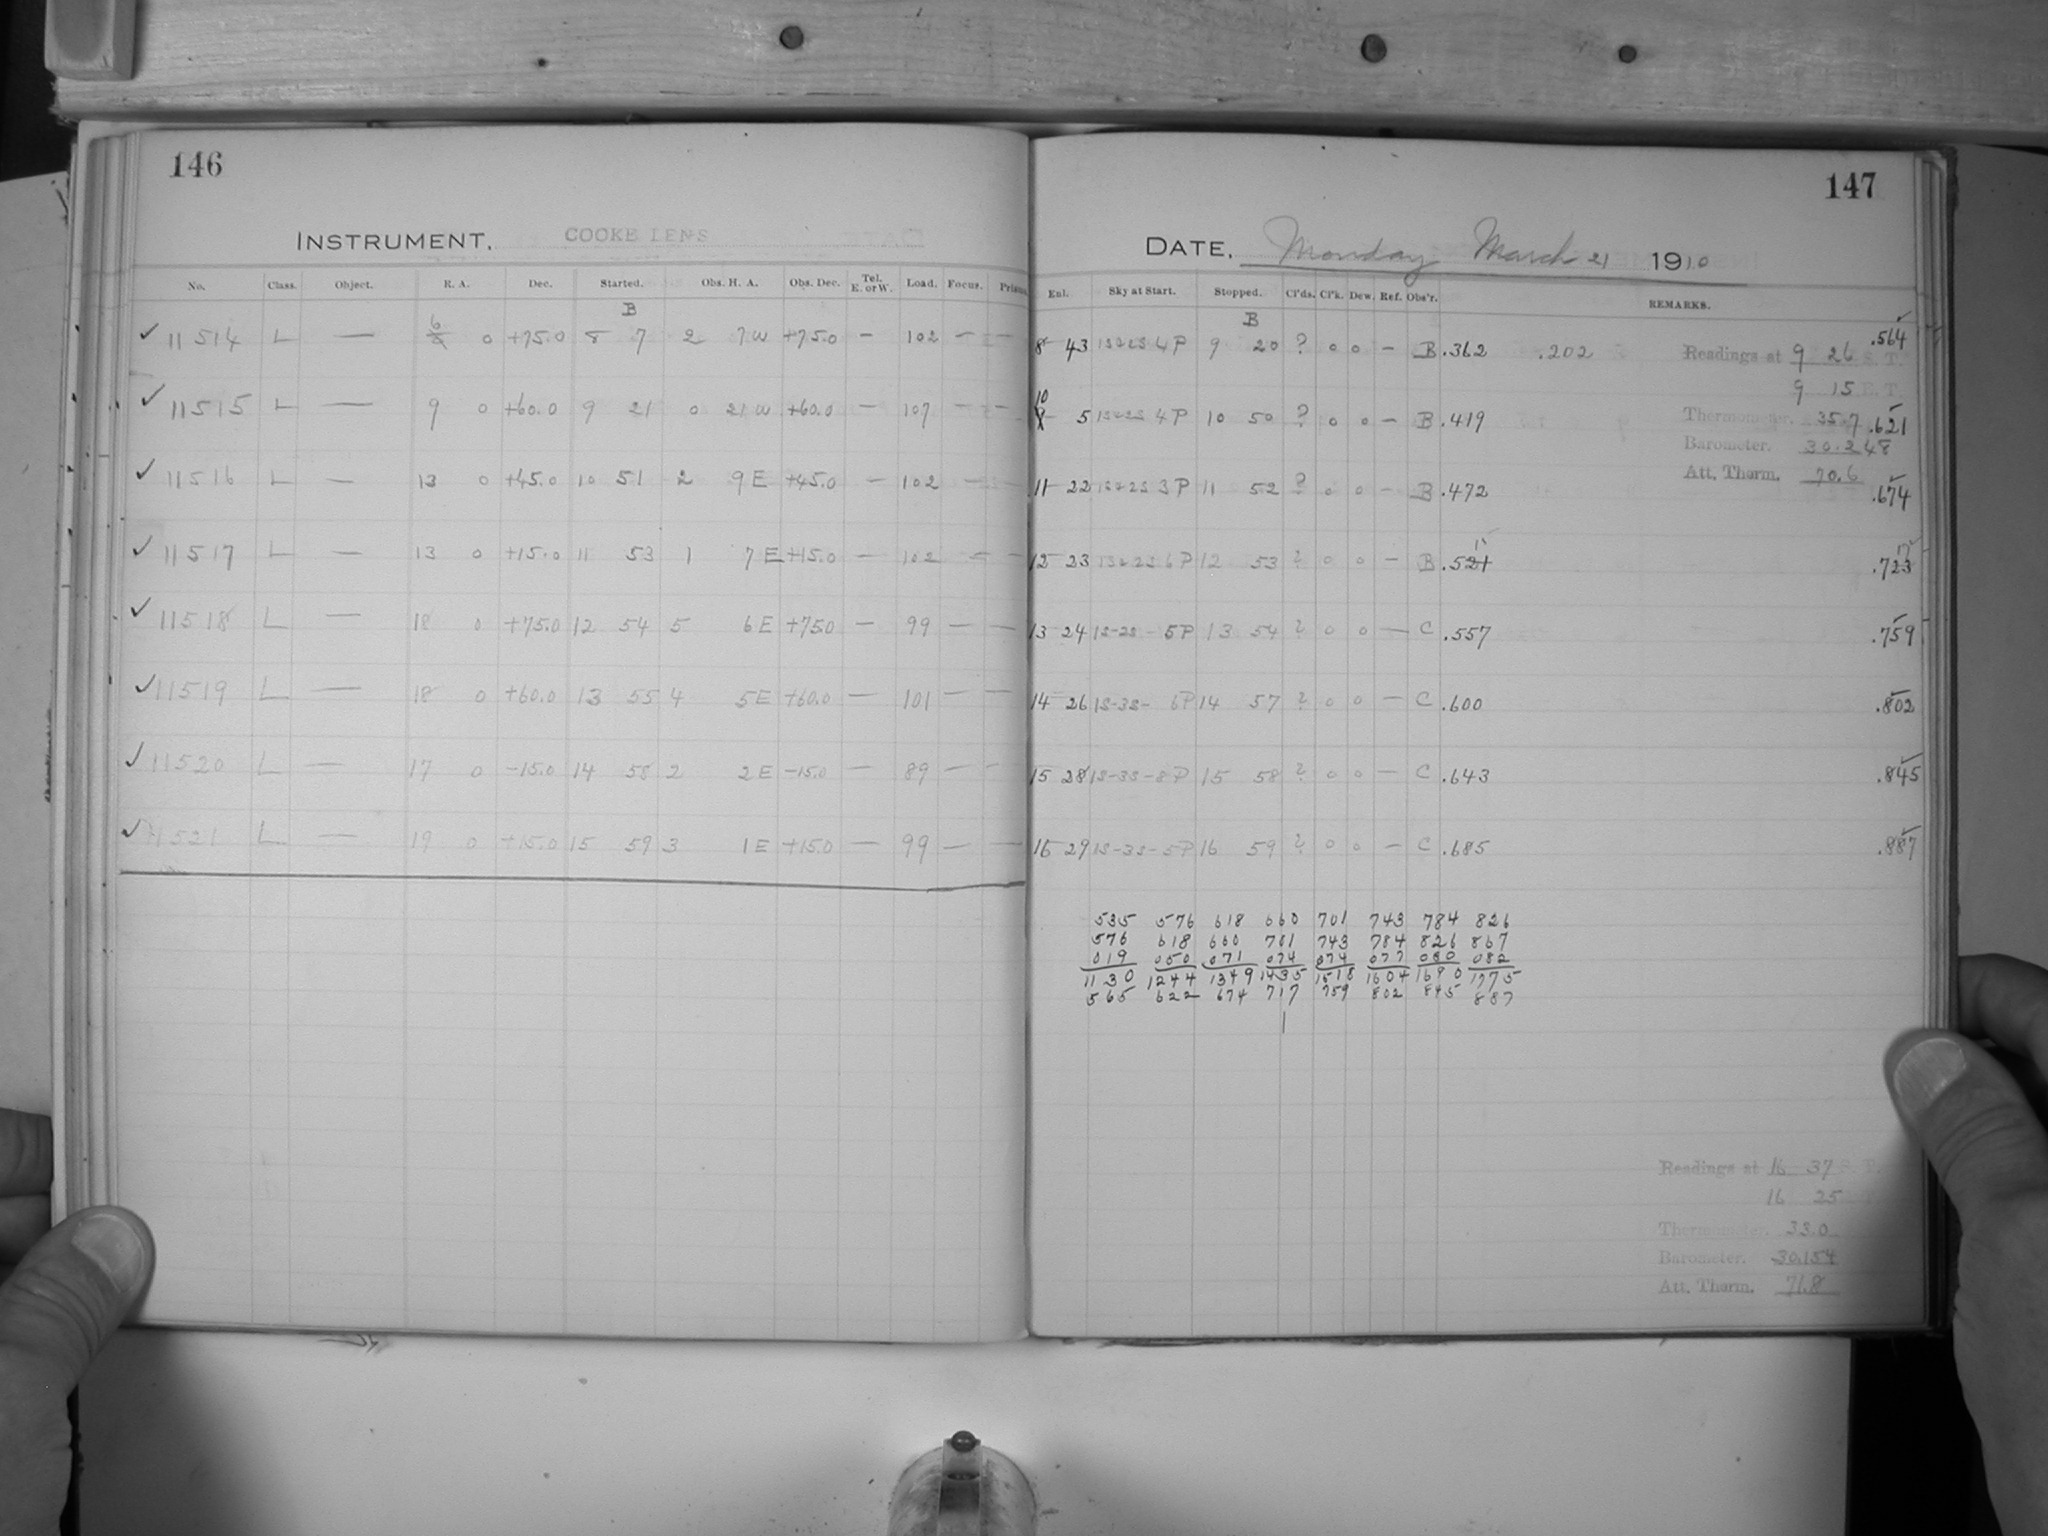 146
INSTRUMENT. COOKE LENS
No. Class. Object. R. A. Dec. Started. Obs. H. A. Obs. Dec. Tel. E. or W. Load. Focus. Prism.
B
6
✓ 11514 L — 8 0 +75.0 8 7 2 7 W +75.0 — 102 — —
✓ 11515 L — 9 0 +60.0 9 21 0 21 W +60.0 — 107 — —
✓ 11516 L — 13 0 +45.0 10 51 2 9 E +45.0 — 102 — —
✓ 11517 L — 13 0 +15.0 11 53 1 7 E +15.0 — 102 — —
✓ 11518 L — 18 0 +75.0 12 54 5 6 E +75.0 — 99 — —
✓ 11519 L — 18 0 +60.0 13 55 4 5 E +60.0 — 101 — —
✓ 11520 L — 17 0 -15.0 14 58 2 2 E -15.0 — 89 — —
✓ 11521 L — 19 0 +15.0 15 59 3 1 E +15.0 — 99 — —
147
DATE, Monday March 21 1910
Enl. Sky at Start. Stopped. Cl'ds. Cl'k. Dew. Ref. Obs'r. REMARKS.
B
8 43 1S-2S 4P 9 20 ? 0 0 — B .362 .202 .564
10
5 1S-2S 4P 10 50 ? 0 0 — B .419 .621
11 22 1S-2S 3P 11 52 ? 0 0 — B .472 .674
15 17
12 23 1S-2S 6P 12 53 ? 0 0 — B .521 .723
13 24 1S-2S- 5P 13 54 ? 0 0 — C .557 .759
14 26 1S-3S- 6P 14 57 ? 0 0 — C .600 .802
15 28 1S-3S-8P 15 58 ? 0 0 — C .643 .845
16 29 1S-3S-5P 16 59 ? 0 0 — C .685 .887
Readings at 9 26 S. T.
9 15 E. T.
Thermometer. 35.7
Barometer. 30.248
Att. Therm. 70.6
535 576 618 660 701 743 784 826
576 618 660 701 743 784 826 867
019 050 071 074 074 077 080 082
1130 1244 1349 1435 1518 1604 1690 1775
565 622 674 717 759 802 845 887
Readings at 16 37 S. T.
16 25
Thermometer. 33.0
Barometer. 30.154
Att. Therm. 71.8